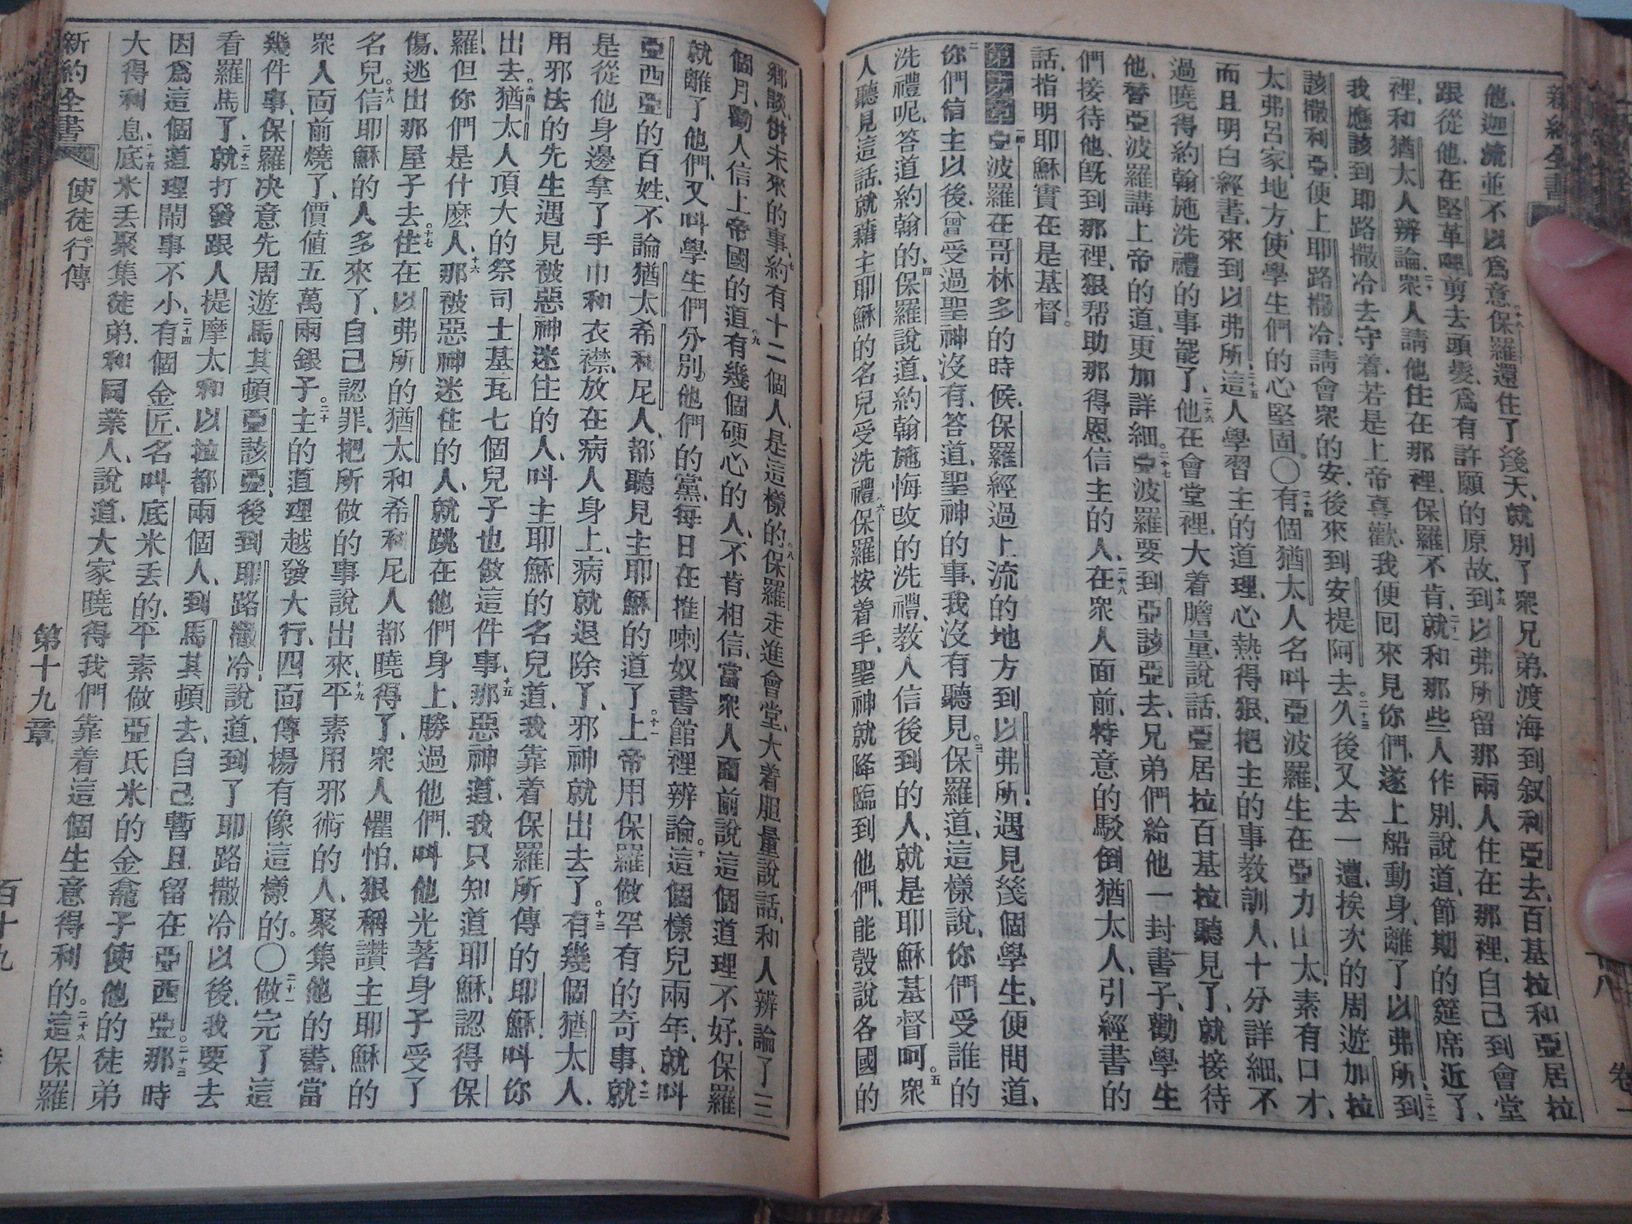 新約全書
他、迦流並不以爲意、十八保羅還住了幾天、就別了衆兄弟、渡海到叙利亞去、百基拉和亞居拉
跟從他、在堅革哩剪去頭髮、爲有許願的原故、十九到以弗所留那兩人住在那裡、自己到會堂
裡、和猶太人辨論、二十衆人請他住在那裡、保羅不肯、就和那些人作別、說道、節期的筵席近了、
我應該到耶路撒冷去守着、若是上帝喜歡、我便回來見你們、遂上船動身、離了以弗所、二十二到
該撒利亞、便上耶路撒冷、請會衆的安、後來到安提阿去、二十三久後又去一遭、挨次的周遊加拉
太弗呂家地方、使學生們的心堅固。〇二十四有個猶太人名叫亞波羅、生在亞力山太、素有口才、
而且明白經書、來到以弗所、二十五這人學習主的道理、心執得狠、把主的事教訓人、十分詳細、不
過曉得約翰施洗禮的事罷了、二十六他在會堂裡、大着膽量、說話、亞居拉百基拉聽見了、就接待
他、替亞波羅講上帝的道、更加詳細。二十七亞波羅要到亞該亞去、兄弟們給他一封書子、勸學生
們接待他、旣到那裡、狠帮助那得恩信主的人、二十八在衆人面前、特意的駁倒猶太人、引經書的
話、指明耶穌實在是基督。
亞波羅在哥林多的時候、保羅經過上流的地方到以弗所、遇見幾個學生、便問道、
二你們信主以後、曾受過聖神沒有、答道、聖神的事、我沒有聽見、三保羅道、這樣說、你們受誰的
洗禮呢、答道、約翰的、四保羅說道、約翰施悔改的洗禮、教人信後到的人、就是耶穌基督呵、五衆
人聽見這話、就藉主耶穌的名兒受洗禮、六保羅按着手、聖神就降臨到他們、能彀說各國的
鄉談、併未來的事、七約有十二個人、是這樣的、八保羅走進會堂、大着胆量說話、和人辨論了三
個月、勸人信上帝國的道、九有幾個硬心的人、不肯相信、當衆人面前說這個道理不好、保羅
就離了他們、又叫學生們分別他們的黨、每日在推喇奴書館裡辨論、十這個樣兒兩年、就叫
亞西亞的百姓、不論猶太希利尼人、都聽見主耶穌的道了、十一上帝用保羅做罕有的奇事、十二就
是從他身邊拿了手巾和衣襟、放在病人身上、病就退除了、邪神就出去了。十三有幾個猶太人、
用邪法的先生、遇見被惡神迷住的人、叫主耶穌的名兒道、我靠着保羅所傳的耶穌、叫你
出去、十四猶太人頂大的祭司士基瓦、七個兒子也做這件事、十五那惡神道、我只知道耶穌、認得保
羅、但你們是什麽人、十六那被惡神迷住的人、就跳在他們身上、勝過他們、叫他光著身子受了
傷、逃出那屋子去、十七住在以弗所的猶太和希利尼人都曉得了、衆人懼怕、狠稱讚主耶穌的
名兒、十八信耶穌的人多來了、自己認罪、把所做的事說出來、十九平素用邪術的人、聚集他的書、當
衆人面前燒了、價值五萬兩銀子。二十主的道理越發大行、四面傳揚、有像這樣的。〇二十一做完了這
幾件事、保羅决意先周遊馬其頓亞該亞、後到耶路撒冷、說道、到了耶路撒冷以後、我要去
看羅馬了、二十二就打發跟人提摩太和以拉都兩個人、到馬其頓去、自己暫且留在亞西亞。二十三那時
因爲這個道理鬧事不小、二十四有個金匠、名叫底米丟的、平素做亞氐米的金龕子、使他的徒弟
大得利息、二十五底米丟聚集徒弟、和同業人、說道、大家曉得我們靠着這個生意得利的。二十六這保羅
新約全書 使徒行傳 第十九章 百十九